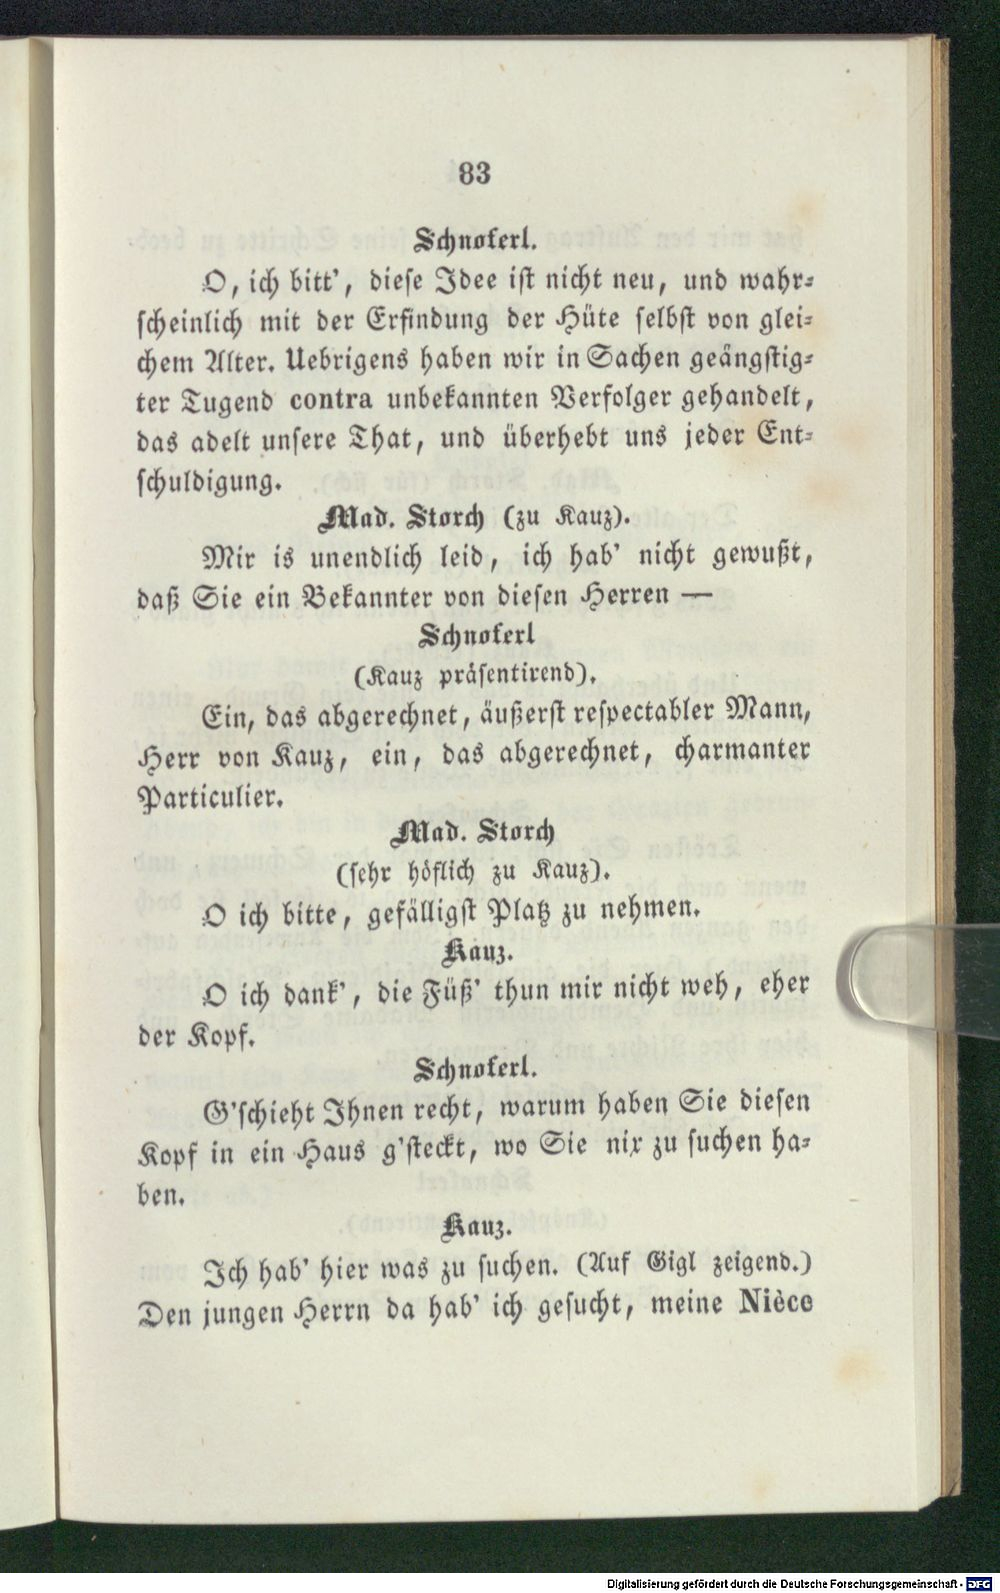 83
Schnoferl.
O, ich bitt', diese Idee ist nicht neu, und wahr-
scheinlich mit der Erfindung der Hüte selbst von glei-
chem Alter. Uebrigens haben wir in Sachen geängstig-
ter Tugend contra unbekannten Verfolger gehandelt,
das adelt unsere That, und überhebt uns jeder Ent-
schuldigung.
Mad. Storch (zu Kauz).
Mir is unendlich leid, ich hab' nicht gewußt,
daß Sie ein Bekannter von diesen Herren —
Schnoferl
(Kauz präsentirend).
Ein, das abgerechnet, äußerst respectabler Mann,
Herr von Kauz, ein, das abgerechnet, charmanter
Particulier.
Mad. Storch
(sehr höflich zu Kauz).
O ich bitte, gefälligst Platz zu nehmen.
Kauz.
O ich dank', die Füß' thun mir nicht weh, eher
der Kopf.
Schnoferl.
G'schieht Ihnen recht, warum haben Sie diesen
Kopf in ein Haus g'steckt, wo Sie nix zu suchen ha-
ben.
Kauz.
Ich hab' hier was zu suchen. (Auf Gigl zeigend.)
Den jungen Herrn da hab' ich gesucht, meine Nièce
Digitalisierung gefördert durch die Deutsche Forschungsgemeinschaft - DFG